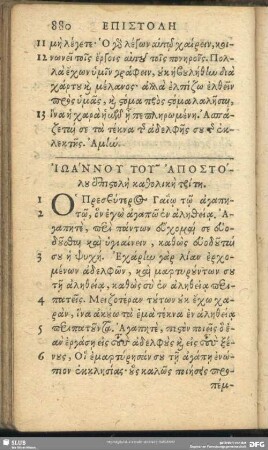 880 ΕΠΙΣΤΟΛΗ
11 μὴ λέγετε· Ὁ γὸ λέγων αὐτῷ χαίρειν, κοι-
12 νωνεῖ τοῖς ἔργοις αὐτοῦ τοῖς πονηροῖς. Πολ-
λὰ ἔχων ὑμῖν γράφειν, οὐκ ἠβουλήθην διὰ
χάρτου κỳ μέλανος· ἀλλὰ ἐλπίζω ἐλθεῖν
πρὸς ὑμᾶς, κỳ στόμα πρὸς στόμα λαλῆσαι,
13 ἵνα ἡ χαρὰ ἡμῶν ᾖ πεπληρωμένη. Ἀσπά-
ζεταί σε τὰ τέκνα τῆς ἀδελφῆς σου τῆς ἐκ-
λεκτῆς. Ἀμήν.
ἸΩΑΝΝΟΥ ΤΟΥ ἈΠΟΣΤΟ-
λου ἐπιστολὴ καθολικὴ τρίτη.
1 Ὁ Πρεσβύτερος Γαΐῳ τῷ ἀγαπη-
2 τῷ, ὃν ἐγὼ ἀγαπῶ ἐν ἀληθείᾳ. Ἀ-
γαπητὲ, περὶ πάντων εὔχομαί σε εὐο-
δοῦσθαι καὶ ὑγιαίνειν, καθὼς εὐοδοῦταί
3 σου ἡ ψυχή. Ἐχάρην γὰρ λίαν ἐρχο-
μένων ἀδελφῶν, καὶ μαρτυρούντων σου
τῇ ἀληθείᾳ, καθὼς σὺ ἐν ἀληθείᾳ περι-
4 πατεῖς. Μειζοτέραν τούτων οὐκ ἔχω χα-
ρὰν, ἵνα ἀκούω τὰ ἐμὰ τέκνα ἐν ἀληθείᾳ
5 περιπατοῦντα. Ἀγαπητὲ, πιστὸν ποιεῖς ὃ ἐ-
ὰν ἐργάσῃ εἰς τοὺς ἀδελφοὺς κỳ εἰς τοὺς ξέ-
6 νους, Οἳ ἐμαρτύρησάν σου τῇ ἀγάπῃ ἐνώ-
πιον ἐκκλησίας· οὓς καλῶς ποιήσεις προ-
πέμ-